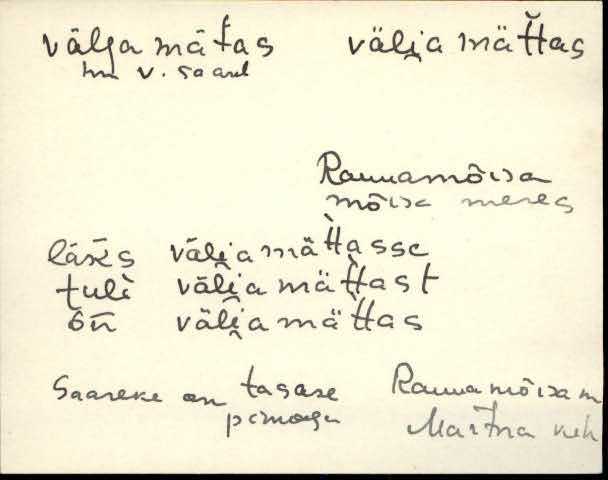 välja mätas väliamättas
hm v. saarel
Rannamõisa
mõisa meres
läks väliamättasse
tuli väliamättast
on väliamättas
Saareke on tasase Rannamõisa m
pinnaga Martna kih